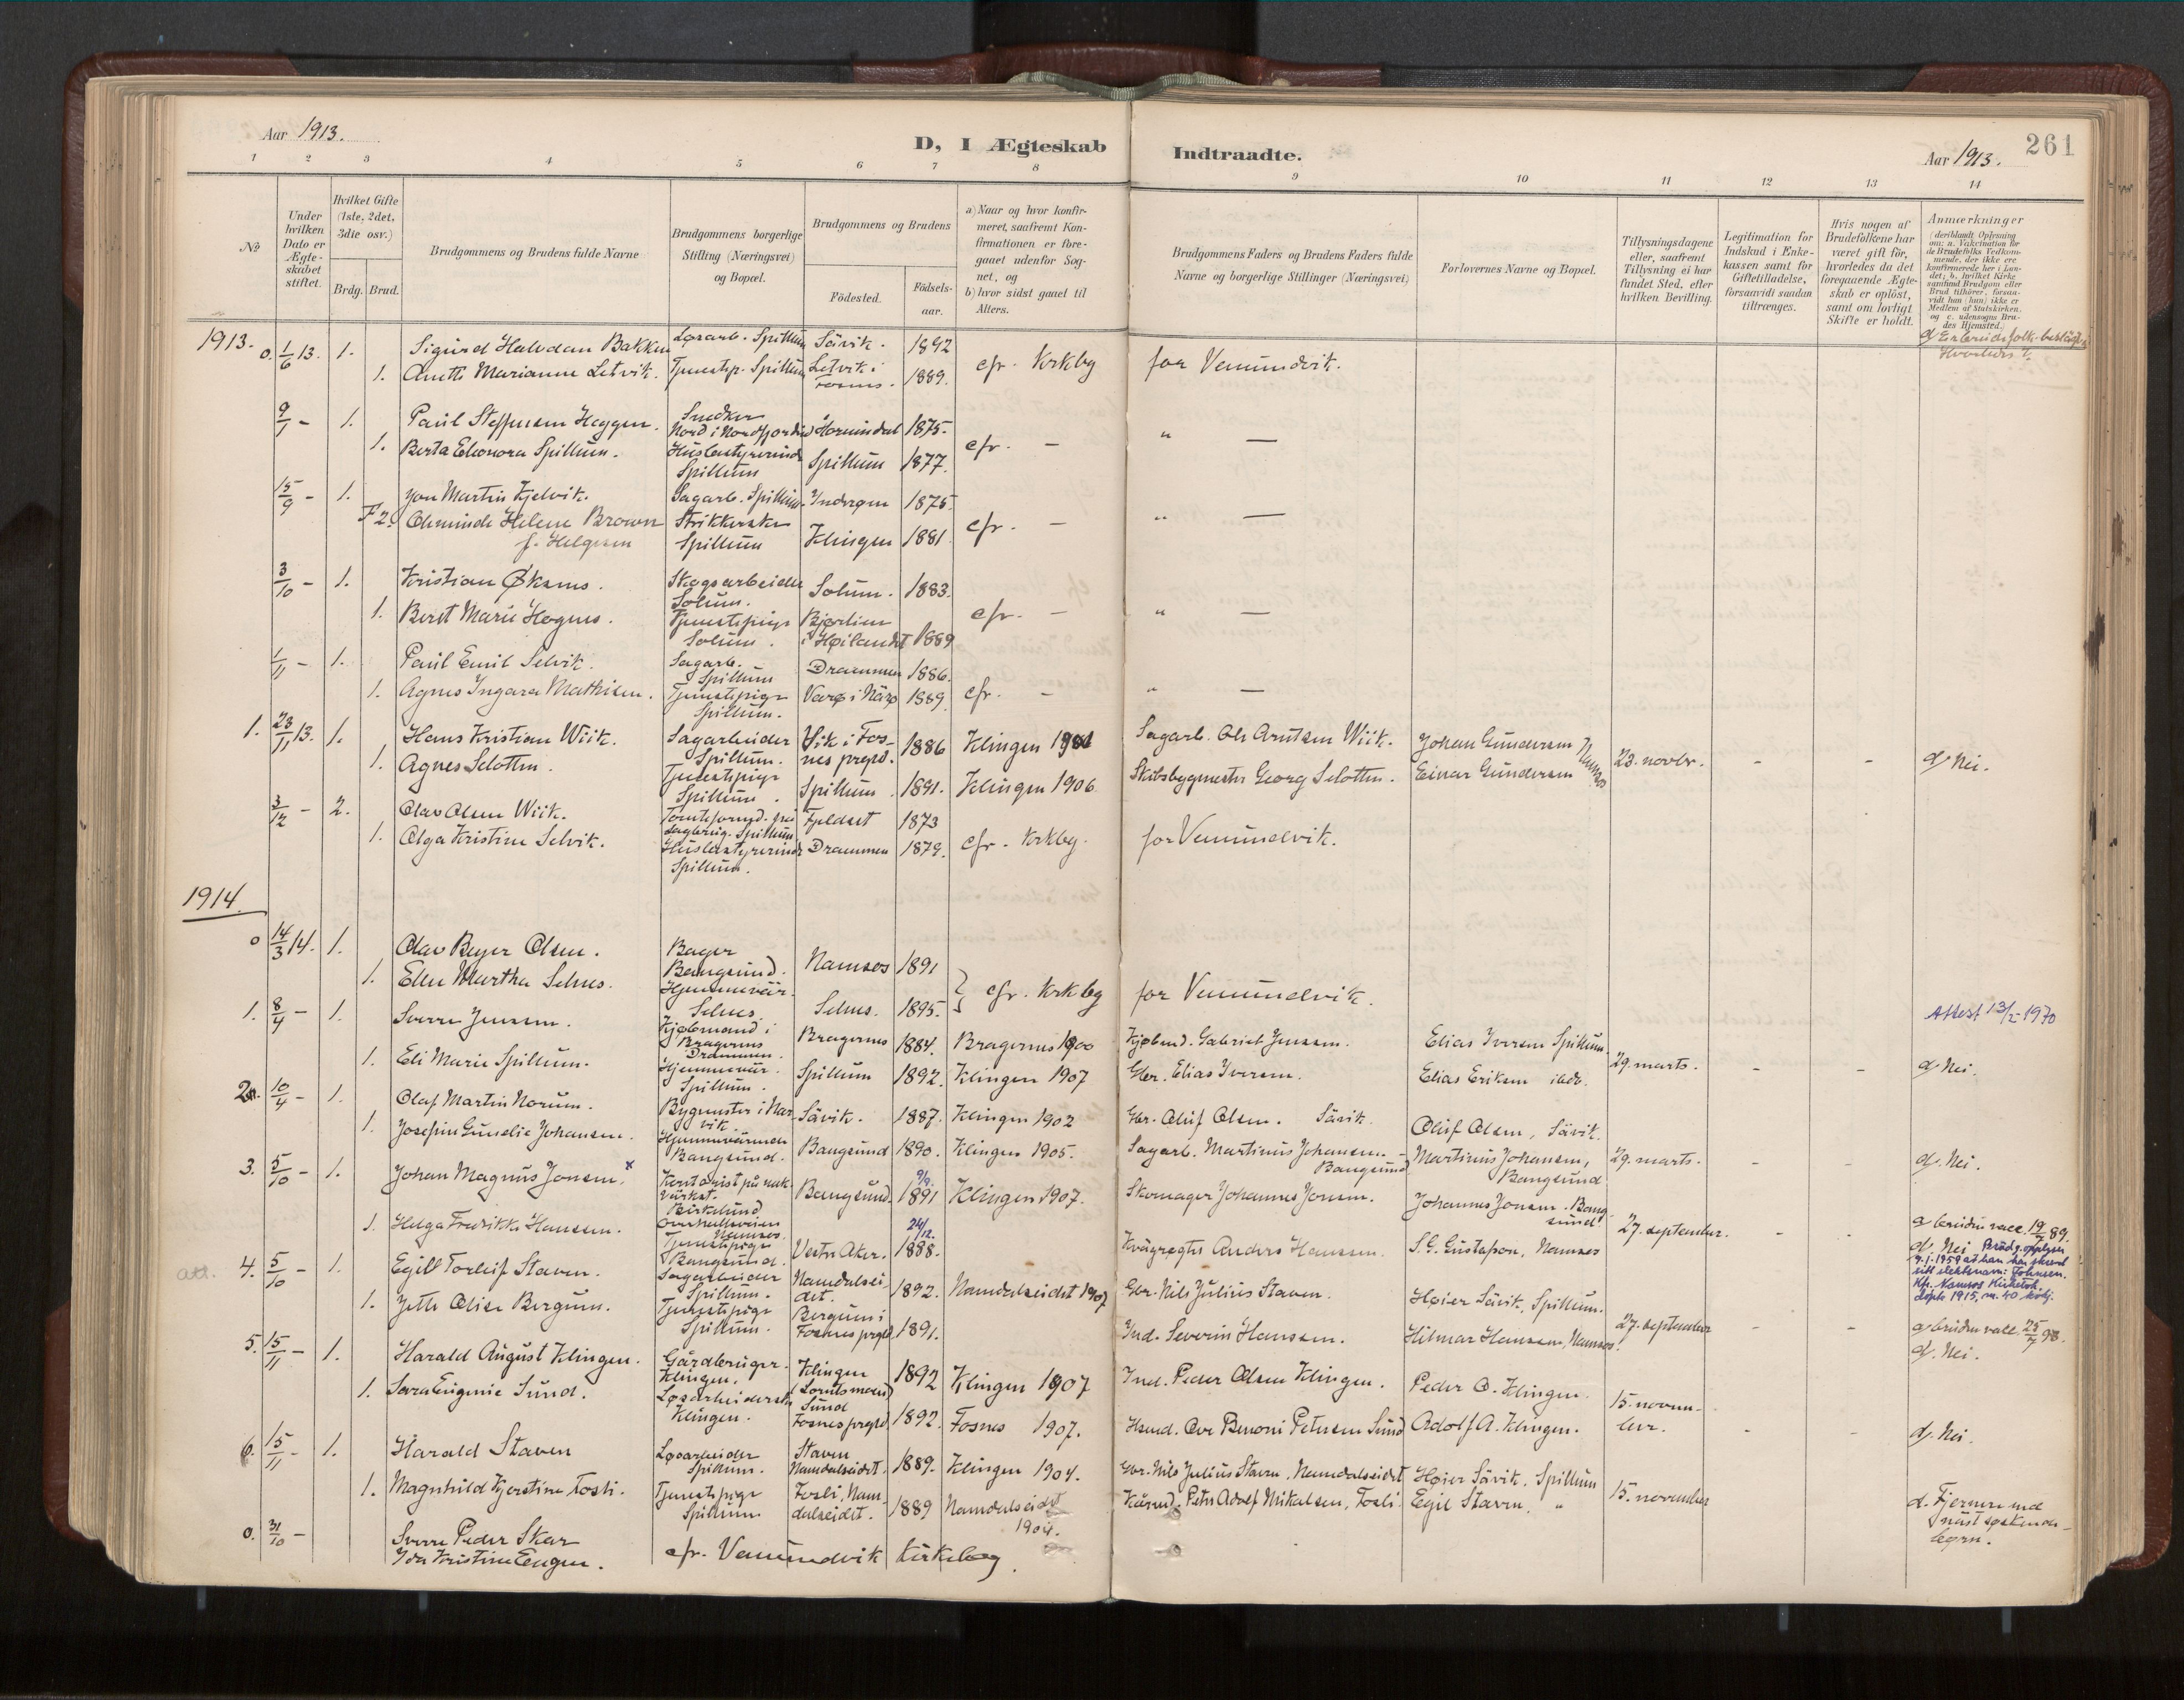 Aar 1913.
D, I Ægteskab
Indtraadte.
Aar 1913.
261
1 2 3 4 5 6 7 8 9 10 11 12 13 14
№
Under hvilken Dato er Ægteskabet stiftet.
Hvilket Gifte (1ste, 2det, 3die osv.)
Brdg. Brud.
Brudgommens og Brudens fulde Navne
Brudgommens borgerlige Stilling (Næringsvei) og Bopæl.
Brudgommens og Brudens
Fødested.
Fødsels-aar.
a) Naar og hvor konfirmeret, saafremt Konfirmationen er foregaaet udenfor Sognet, og
b) hvor sidst gaaet til Alters.
Brudgommens Faders og Brudens Faders fulde Navne og borgerlige Stillinger (Næringsvei)
Forlovernes Navne og Bopæl.
Tillysningsdagene eller, saafremt Tillysning ei har fundet Sted, efter hvilken Bevilling.
Legitimation for Indskud i Enkekassen samt for Giftetilladelse, forsaavidt saadan tiltrænges.
Hvis nogen af Brudefolkene har været gift før, hvorledes da det foregaaende Ægteskab er opløst, samt om lovligt Skifte er holdt.
Anmærkninger (deriblandt Oplysning om: a. Vakcination for de Brudefolks Vedkommende, der ikke ere konfirmerede her i Landet; b. hvilket Kirkesamfund Brudgom eller Brud tilhører, forsaavidt han (hun) ikke er Medlem af Statskirken, og c. udensogns Brudes Hjemsted.)
d) Er brudefolk beslægt.
Hvorledes?
1913.
0. 1/6 13. 1. Sigurd Halvdan Bakken Løsarb. Spillum Sävik. 1892
1. Anette Marianne Letvik. Tjenestep. Spillum Letvik i Fosnes. 1889. cfr. Krkbg for Vemundvik.
9/7 - 1. Paul Steffensen Heggen. Snedker Nord i Nordfjordeid Hornindal 1875.
1. Berta Eleonora Spillum. Husbestyrerinde Spillum Spillum 1877. cfr. - " -
15/9 - 1. Jon Martin Kjelvik. Sagarb. Spillum. Inderøen 1875.
F 2. Oleminde Helene Brown f. Helgesen Strikkerske Spillum Klingen 1881. cfr. - " -
3/10 - 1. Kristian Øksnes. Skogsarbeider Solum. Solum. 1883.
1. Berit Marie Hognes. Tjenestepige Solum. Bjørlien i Høilandet 1889 cfr. - " -
1/11 - 1. Paul Emil Selvik. Sagarb. Spillum Drammen 1886.
1. Agnes Ingara Mathisen. Tjenestepige Spillum. Varø i Närø 1889. cfr. - " -
1. 23/11 13. 1. Hans Kristian Wiik. Sagarbeider Spillum. Vik i Fosnes prgld. 1886 Klingen 1901 Sagarb. Ole Arntsen Wiik. Johan Gundersen Namsos 23. novbr. - - d. Nei.
1. Agnes Selotten. Tjenestepige Spillum. Spillum. 1891. Klingen 1906. Skibsbygmester Georg Selotten. Einar Gundersen
3/12 - 2. Olav Olsen Wiik. Tomteformd. på Sagbrug. Spillum Fjeldset 1873
1. Olga Kristine Selvik. Husbestyrerinde Spillum. Drammen 1879. cfr. Krkbg. for Vemundvik.
1914.
0 14/3 14. 1. Olav Beyer Olsen. Bager Bangsund. Namsos 1891
1. Ellen Martha Selnes. Hjemmevær. Selnes. Selnes. 1895. cfr. Krkbg for Vemundvik.
1. 8/4 - 1. Sverre Jensen. Kjøbmand i Bragernes Drammen. Bragernes 1884. Bragernes 1900 Kjøbmd. Gabriel Jensen. Elias Iversen Spillum. 29. marts. - - d. Nei.
Attest 13/2-1970
1. Eli Marie Spillum. Hjemmevär. Spillum. Spillum 1892. Klingen 1907 Gbr. Elias Iversen. Elias Eriksen ibdr.
2. 10/4 - 1. Olaf Martin Norum. Bygmester i Narvik. Sävik. 1887. Klingen 1902 Gbr. Oluf Olsen. Sävik. Oluf Olsen, Sävik. 29. marts. - - d. Nei.
1. Josefine Gunelie Johansen. Hjemmevärende Bangsund. Bangsund 1890. Klingen 1905. Sagarb. Martinus Johansen. Bangsund Martinus Johansen, Bangsund
3. 5/10 - 1. Johan Magnus Jonsen. x Kontorist på mek. värkst. Birkelund Namsos. Bangsund. 9/9. 1891 Klingen 1907. Skomager Johannes Jonsen. Johannes Jonsen. Bangsund. 27. september. - - a bruden vacc. 19/7 89.
1. Helga Fredrikke Hansen. Tjenestepige Bangsund. Vestre Aker. 24/12. 1888. Kvägrøgter Anders Hansen. S. G. Gustafson, Namsos d. Nei
Brudg. opplyser 9.1.1959 at han har skrevet sitt slektsnavn: Johnsen. Kfr. Namsos Kirkebok. døpte 1915, nr. 40, kvkj.
att. 4. 5/10 - 1. Egill Torleif Staven. Sagarbeider Spillum. Namdalseidet. 1892. Namdalseidet 1907 Gbr. Nils Julius Staven. Høier Sävik, Spillum. 27. september - - a bruden vacc. 25/7 98.
1. Jette Olise Bergum. Tjenestepige Spillum. Bergum i Fosnes prgld. 1891. Ind. Severin Hansen. Hilmar Hansen, Namsos. d. Nei.
5. 15/11 - 1. Harald August Klingen. Gårdbruger. Klingen. Klingen 1892 Klingen 1907 Ind. Peder Olsen Klingen. Peder O. Klingen. 15. november. - - d. Nei.
1. Sara Eugenie Sund. Løsarbeiderske Klingen. Sund Fosnes prgld. 1892. Fosnes 1907. Husmd. Ove Benoni Petersen Sund Adolf A. Klingen.
6. 15/11 - 1. Harald Staven Løsarbeider Spillum. Staven Namdalseidet. 1889. Klingen 1904. Gbr. Nils Julius Staven, Namdalseidet Høier Sävik, Spillum 15. november d. Fjernere end näst søskendebørn.
1. Magnhild Kjerstine Fosli. Tjenestepige Spillum Fosli, Namdalseidet. 1889 Namdalseidet 1904. Peter Adolf Mikalsen, Fosli. Egil Staven. "
0. 31/10 - Sverre Peder Skar
Ida Kristine Eengen. cfr. Vemundvik Kirkebog.